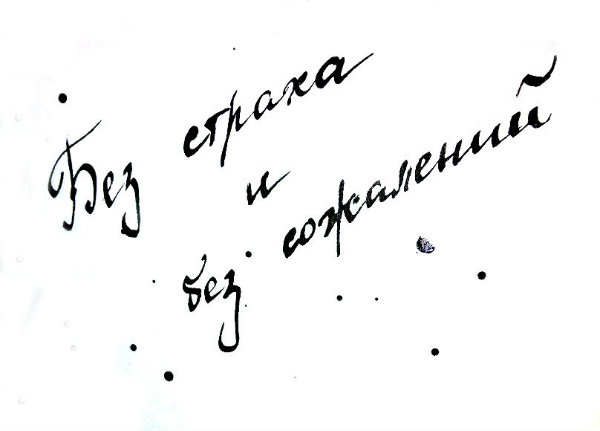 Без страха
и
без сожалений